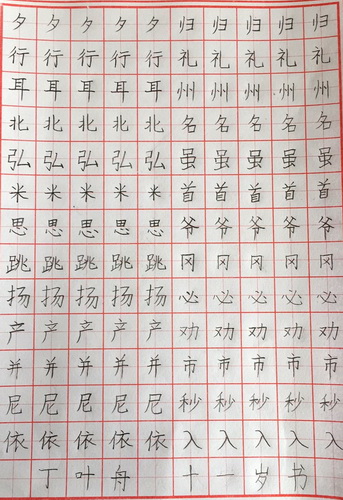 夕夕夕夕夕归归归归归
行行行行行礼礼礼礼礼
耳耳耳耳耳州州州州州
北北北北北名名名名名
弘弘弘弘弘虽虽虽虽虽
米米米米米首首首首首
思思思思思爷爷爷爷爷
跳跳跳跳跳冈冈冈冈冈
扬扬扬扬扬必必必必必
产产产产产劝劝劝劝劝
并并并并并市市市市市
尼尼尼尼尼秒秒秒秒秒
依依依依依入入入入入
丁叶舟十一岁书